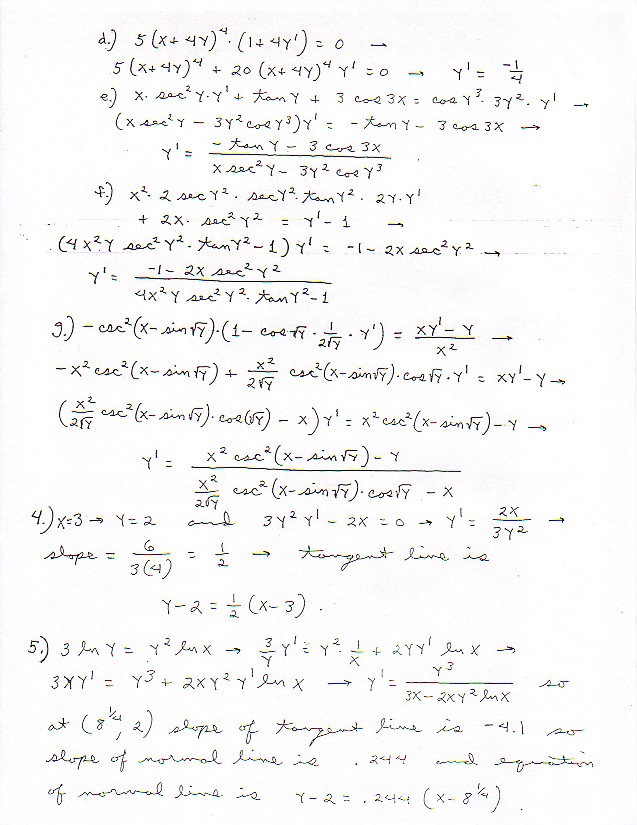 d.) 5(x+4y)⁴·(1+4y') = 0 →
5(x+4y)⁴ + 20(x+4y)⁴ y' = 0 → y' = -1/4
e.) x·sec²y·y' + tan y + 3 cos 3x = cos y³·3y²·y' →
(x sec²y − 3y² cos y³)y' = − tan y − 3 cos 3x →
y' = (− tan y − 3 cos 3x)/(x sec²y − 3y² cos y³)
f.) x²·2 sec y²·sec y²·tan y²·2y·y'
+ 2x·sec² y² = y' − 1 →
(4x²y sec² y²·tan y² − 1) y' = −1 − 2x sec² y² →
y' = (−1 − 2x sec² y²)/(4x²y sec² y²·tan y² − 1)
g.) − csc²(x − sin√y)·(1 − cos√y·1/(2√y)·y') = (xy' − y)/x² →
−x² csc²(x − sin√y) + x²/(2√y) csc²(x − sin√y)·cos√y·y' = xy' − y →
(x²/(2√y) csc²(x − sin√y)·cos(√y) − x) y' = x² csc²(x − sin√y) − y →
y' = (x² csc²(x − sin√y) − y)/(x²/(2√y) csc²(x − sin√y)·cos√y − x)
4.) x=3 → y=2 and 3y² y' − 2x = 0 → y' = 2x/3y² →
slope = 6/3(4) = 1/2 → tangent line is
y − 2 = 1/2 (x − 3) .
5.) 3 ln y = y² ln x → 3/y y' = y²·1/x + 2yy' ln x →
3xy' = y³ + 2xy² y' ln x → y' = y³/(3x − 2xy² ln x) so
at (8^¼, 2) slope of tangent line is −4.1 so
slope of normal line is .244 and equation
of normal line is y − 2 = .244 (x − 8^¼) .